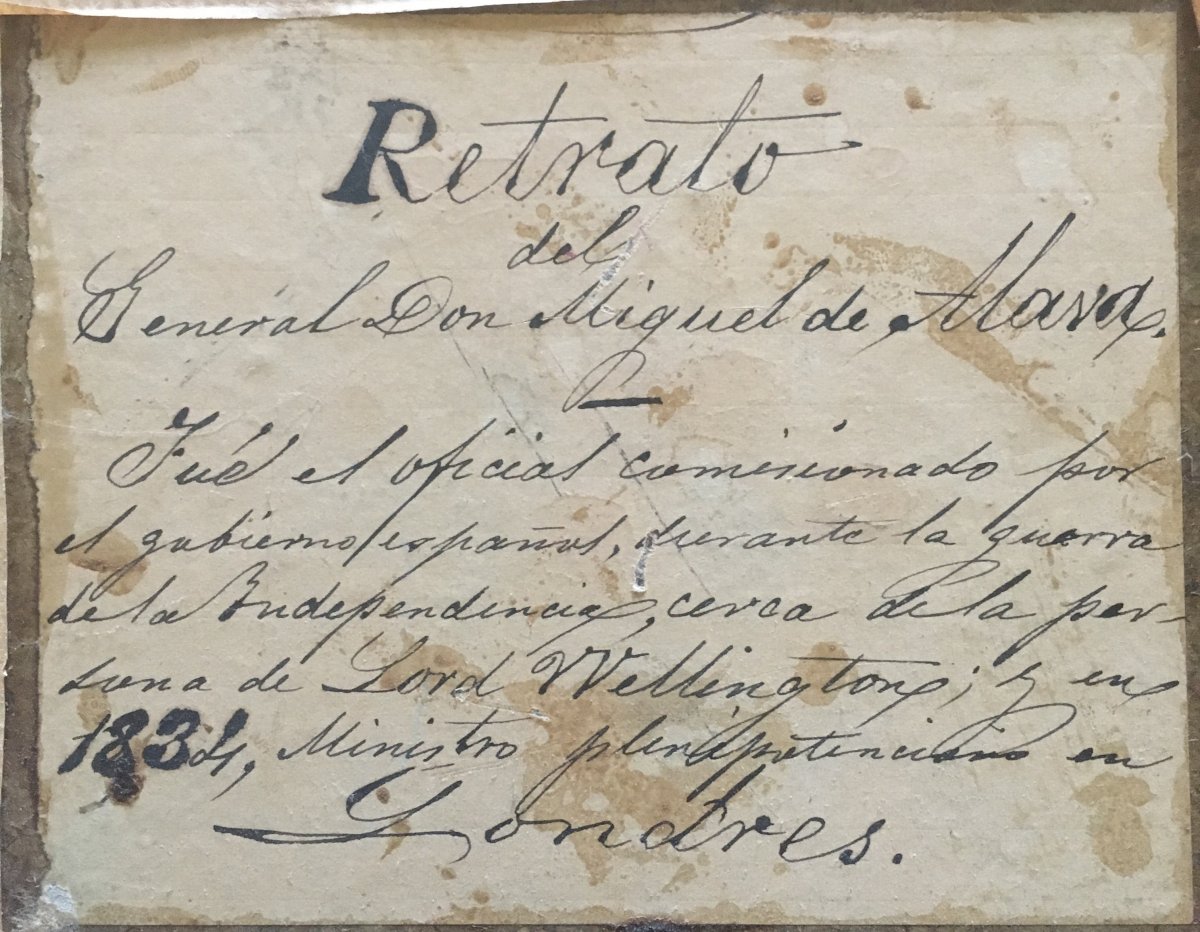 Retrato
del
General Don Miguel de Alava.
Fué el oficial comisionado por
el gobierno español, durante la guerra
de la Independencia, cerca de la per-
sona de Lord Wellington; y en
1834, Ministro plenipotenciario en
Londres.